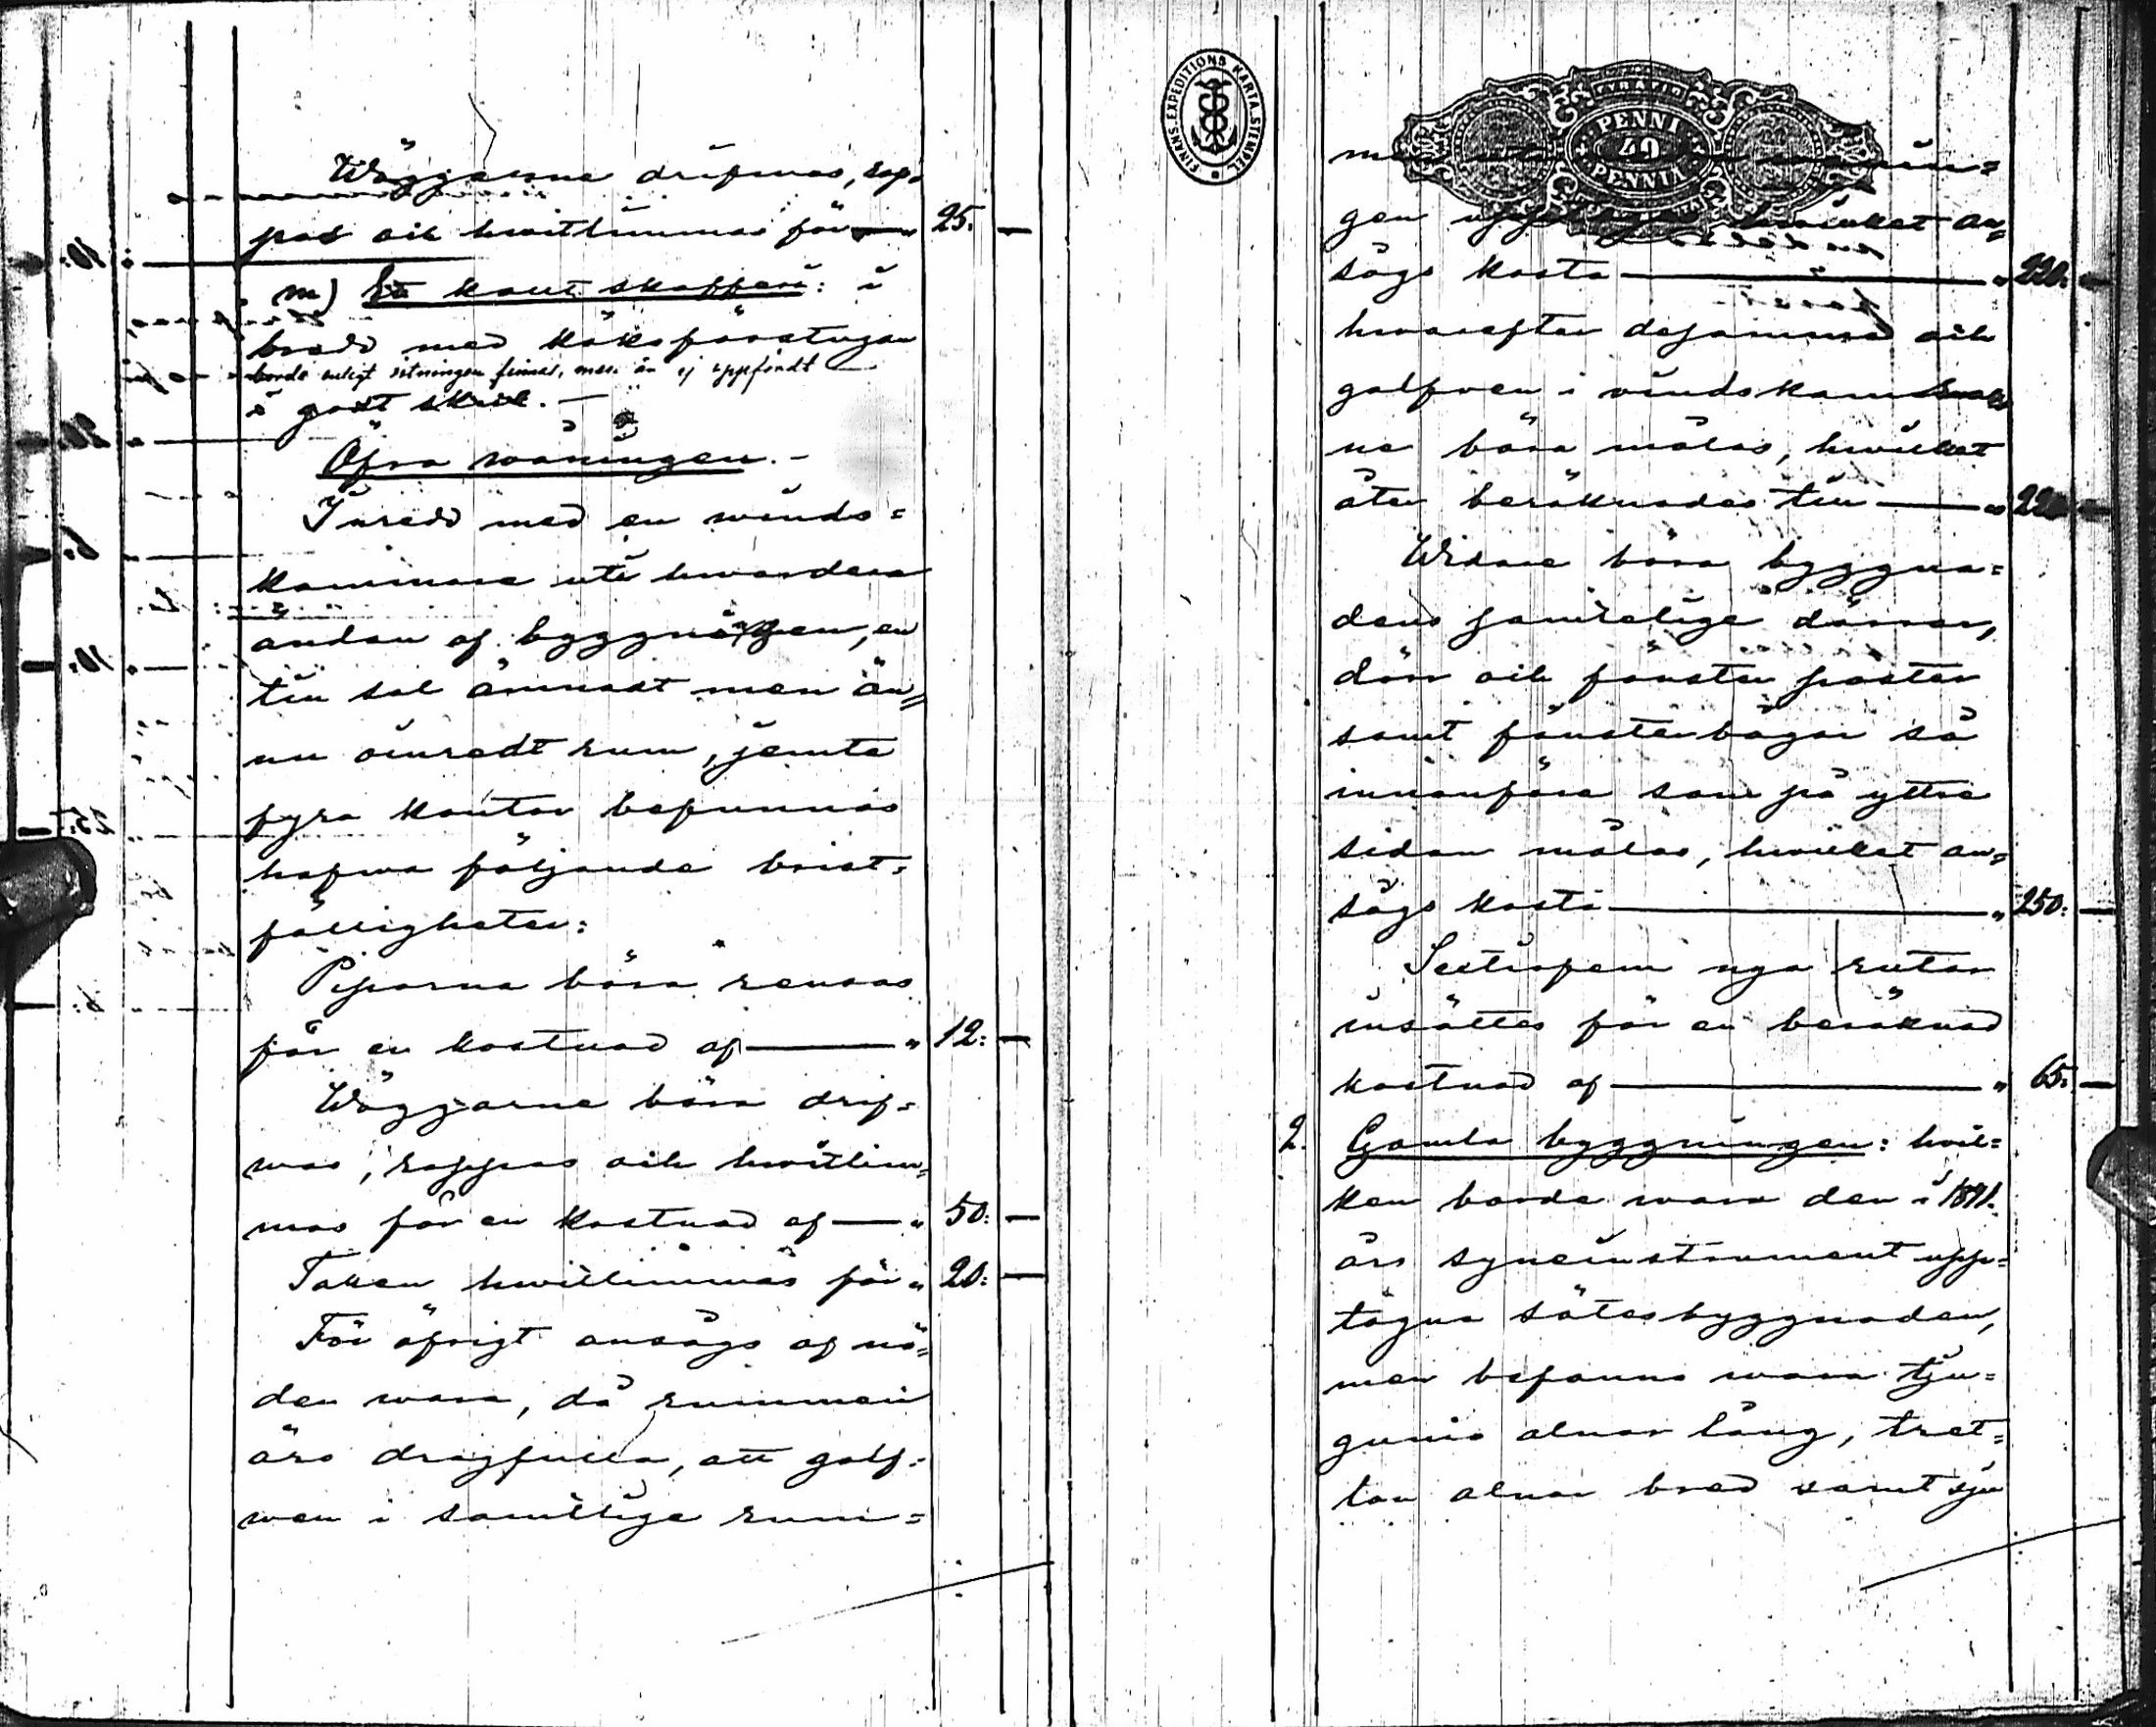 Wäggarne drifwas, rap-
pas och hwitlimmas för — " 25. —
m) Ett kont. skafferi: i
bredd med köksförstugan
borde enligt ritningen finnas, men är ej uppfördt
i godt skick. —
Öfra wåningen. —
Inredd med en winds=
kammare uti hwardera
ändan af byggningen, en
till sal ämnadt men än=
nu oinredt rum, jemte
fyra kontor befunnos
hafwa följande brist=
fälligheter:
Piporna böra rensas
för en kostnad af — " 12: —
Wäggarne böra drif=
was, rappas och hwitlim=
mas för en kostnad af — " 50: —
Taken hwitlimmas för " 20: —
För öfrigt ansågs af nö=
den wara, då rummen
äro dragfulla, att golf=
wen i samtlige rum=
FINANS. EXPEDITIONS KARTA. STEMPEL
PENNI
40
PENNIA
gen hwilket an=
sågs kosta — " 220: —
hwarefter desamma och
golfwen i vindskamrar
ne böra målas, hwilket
åter beräknades till — "
Widare böra byggna=
dens samtelige dörrar,
dörr och fönster poster
samt fönsterbågar så
innanföre som på yttre
sidan målas, hwilket an=
sågs kosta — " 250: —
Sextiofem nya rutor
insättes för en beräknad
kostnad af — " 65: —
2. Gamla byggningen: hwil=
ken borde wara den i 1891.
års syneinstrument upp=
tagna sätesbyggnaden,
men befanns wara tju=
gunio alnar lång, tret=
ton alnar bred samt sju